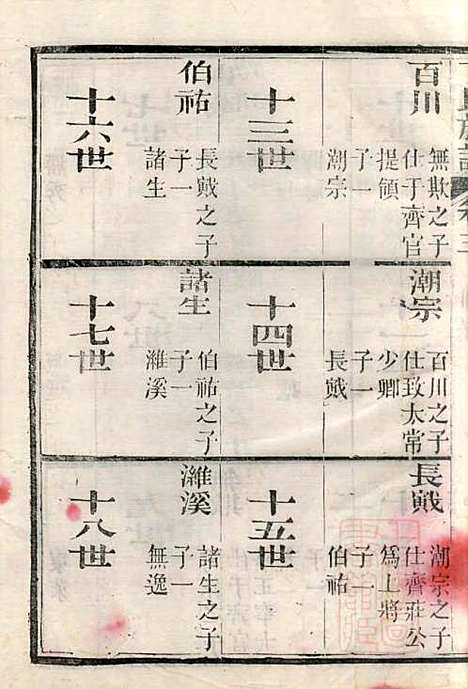 百川
無欺之子
仕于齊官
提領
子一
潮宗
潮宗
百川之子
仕致太常
少卿
子一
長戭
長戭
潮宗之子
仕齊莊公
爲上將
子一
伯祐
十三世
十四世
十五世
伯祐
長戭之子
子一
諸生
諸生
伯祐之子
子一
濰溪
濰溪
諸生之子
子一
無逸
十六世
十七世
十八世